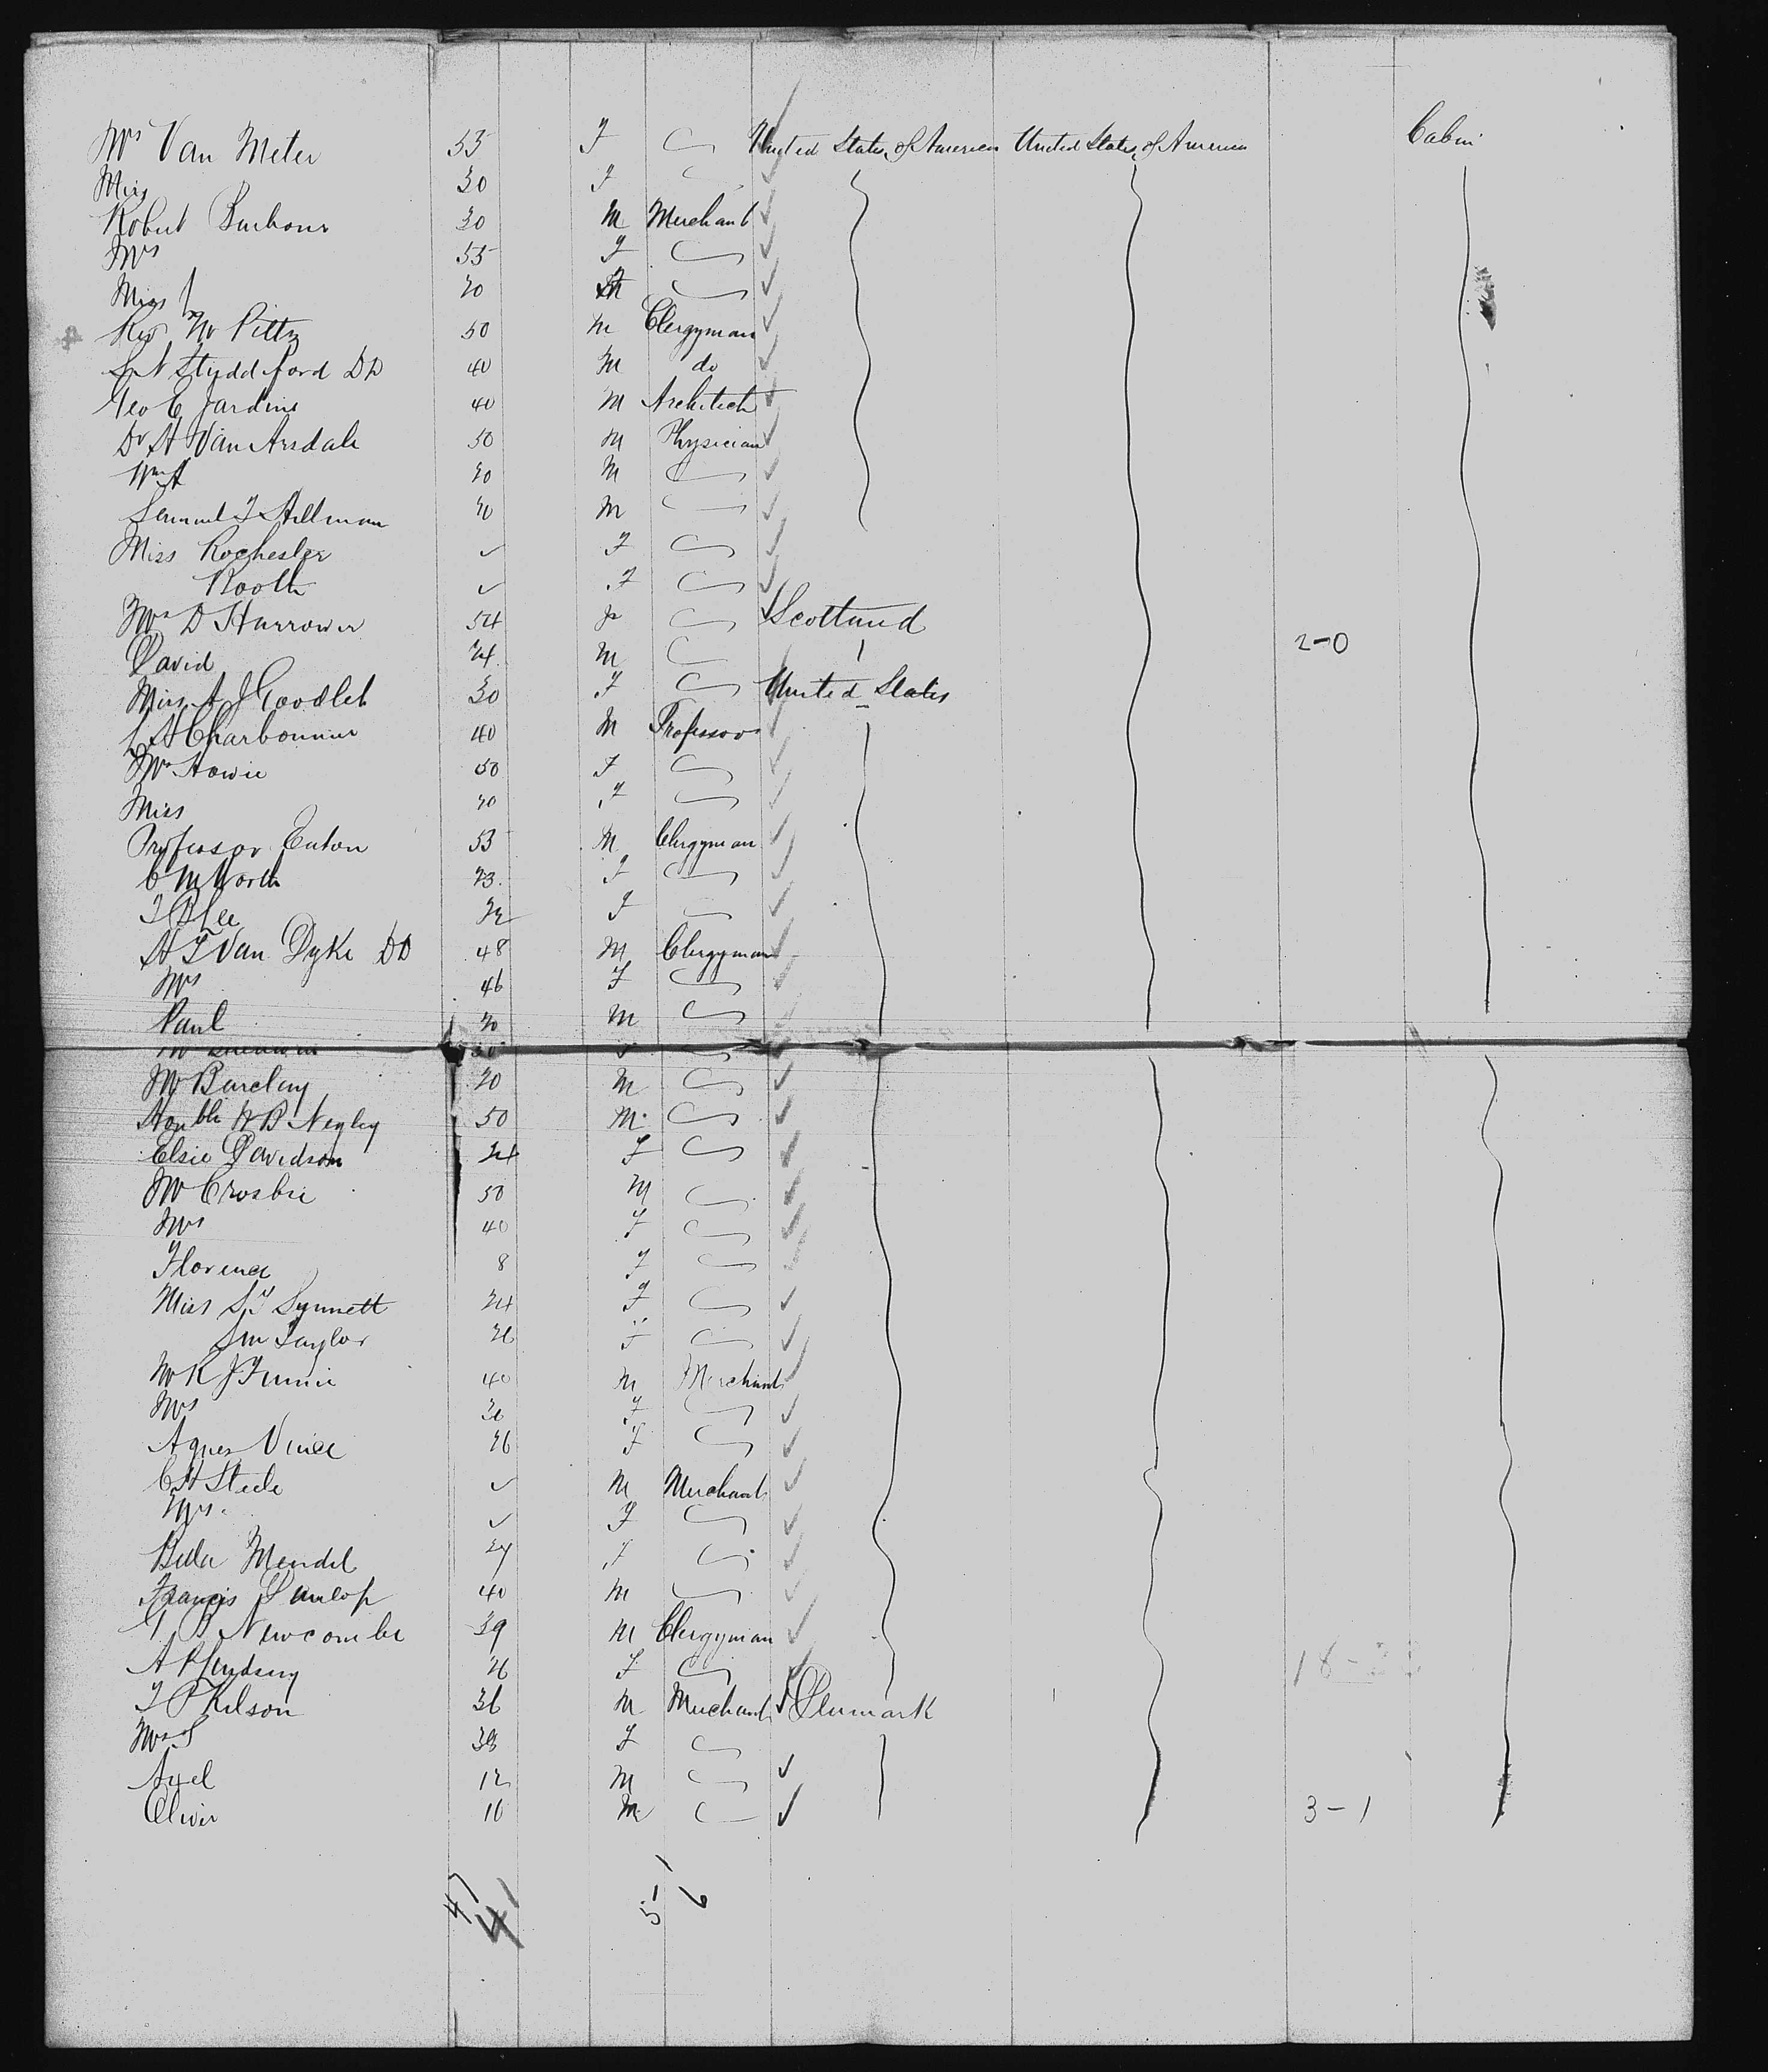 Mrs Van Meter 55 F United States of America United States of America Cabin
Miss 30 F
Robert Barbour 30 M Merchant
Mrs 55 F
Miss 20
Rev Mr Pitts 50 M Clergyman
Studdiford DD 40 M do
Geo E Jardine 40 M Architect
Dr H Van Arsdale 50 M Physician
Wm H 20 M
Samuel T Stillman 20 M
Miss Rochester F
Booth F
Mrs D Harrower 54 F Scotland
David 24 M 2-0
Miss A J Goodlet 30 F United States
L H Charbonnier 40 M Professor
Mrs Howie 50 F
Miss 20 F
Professor Eaton 53 M Clergyman
C M Worth 23 F
T B Lee 22 F
H J Van Dyke DD 48 M Clergyman
Mrs 46 F
Paul 20 M
Mr Barclay 20 M
Honble W B Negley 50 M
Elsie Davidson 24 F
Mr Crosbie 50 M
Mrs 40 F
Florence 8 F
Miss S J Synnett 24 F
Taylor 26 F
Mr R J Finnie 40 M Merchant
Mrs F
Agnes Vince 26 F
C H Steele M Merchant
Mrs F
Bella Mendel 27 F
Francis Dunlop 40 M
B Newcombe 39 M Clergyman
A P Lindsay 26 F 18-
T P Kelson 36 M Merchant Denmark
Mrs S 38 F
Axel 12 M
Oliver 10 M 3-1
47
41
51
6